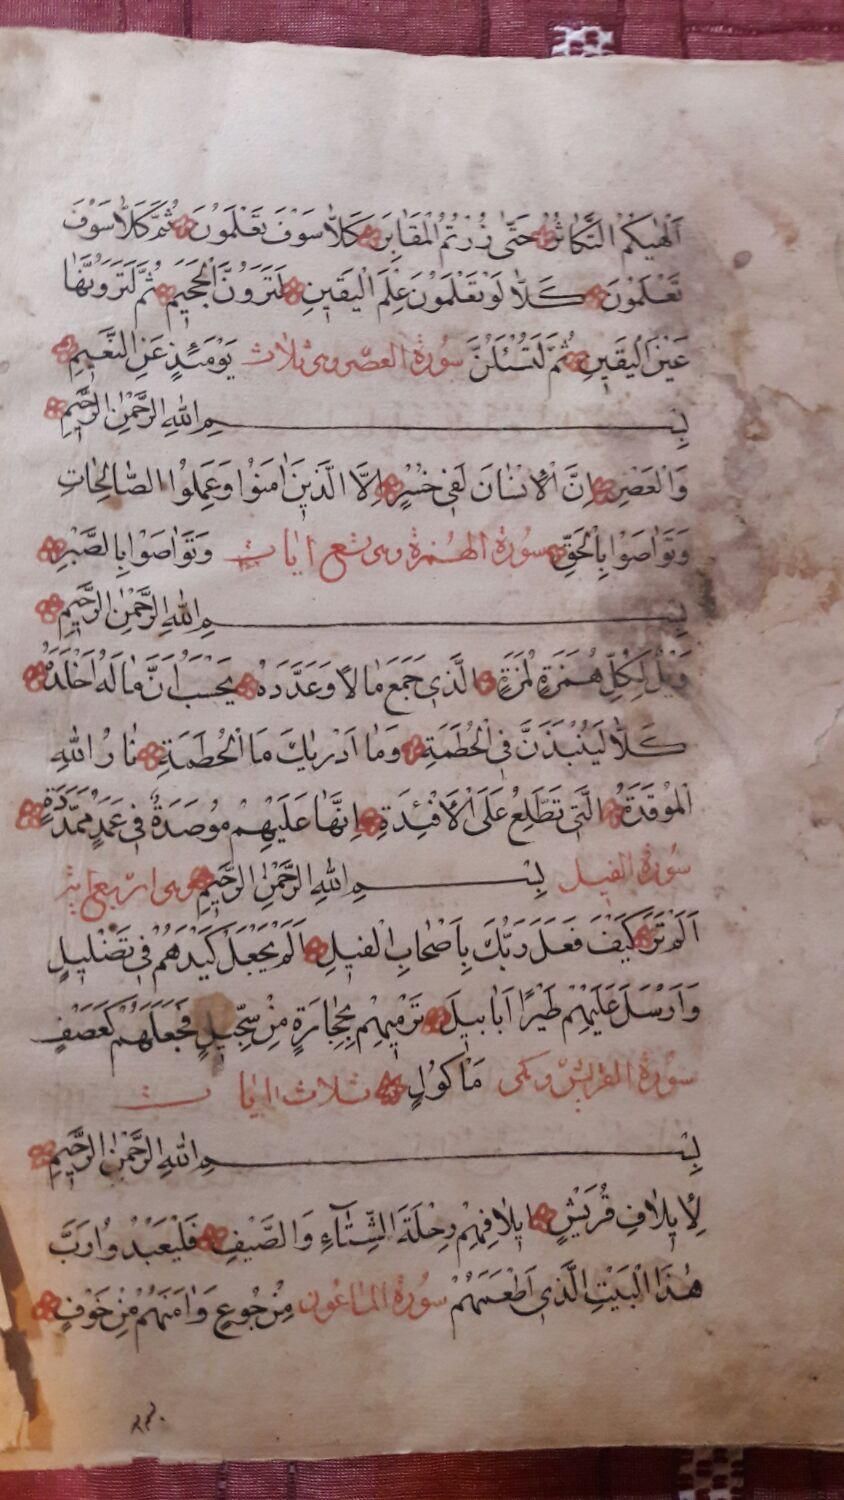 اَلْهٰيكُمُ التَّكَاثُرُ حَتّٰى زُرْتُمُ الْمَقَابِرَ كَلَّا سَوْفَ تَعْلَمُونَ ثُمَّ كَلَّا سَوْفَ
تَعْلَمُونَ كَلَّا لَوْ تَعْلَمُونَ عِلْمَ الْيَقِينِ لَتَرَوُنَّ الْجَحِيمَ ثُمَّ لَتَرَوُنَّهَا
عَيْنَ الْيَقِينِ ثُمَّ لَتُسْئَلُنَّ سورة العصر وهى ثلاث يَوْمَئِذٍ عَنِ النَّعِيمِ
بِسْمِ اللّٰهِ الرَّحْمٰنِ الرَّحِيمِ
وَالْعَصْرِ اِنَّ الْاِنْسَانَ لَفِى خُسْرٍ اِلَّا الَّذِينَ اٰمَنُوا وَعَمِلُوا الصَّالِحَاتِ
وَتَوَاصَوْا بِالْحَقِّ سورة الهمزة وهى تسع ايات وَتَوَاصَوْا بِالصَّبْرِ
بِسْمِ اللّٰهِ الرَّحْمٰنِ الرَّحِيمِ
وَيْلٌ لِكُلِّ هُمَزَةٍ لُمَزَةٍ الَّذِى جَمَعَ مَالًا وَعَدَّدَهُ يَحْسَبُ اَنَّ مَالَهُ اَخْلَدَهُ
كَلَّا لَيُنْبَذَنَّ فِى الْحُطَمَةِ وَمَا اَدْرٰيكَ مَا الْحُطَمَةِ نَارُ اللّٰهِ
الْمُوقَدَةُ الَّتِى تَطَّلِعُ عَلَى الْاَفْئِدَةِ اِنَّهَا عَلَيْهِمْ مُوصَدَةٌ فِى عَمَدٍ مُمَدَّدَةٍ
سورة الفيل بِسْمِ اللّٰهِ الرَّحْمٰنِ الرَّحِيمِ وهى اربع ايت
اَلَمْ تَرَ كَيْفَ فَعَلَ رَبُّكَ بِاَصْحَابِ الْفِيلِ اَلَمْ يَجْعَلْ كَيْدَهُمْ فِى تَضْلِيلٍ
وَاَرْسَلَ عَلَيْهِمْ طَيْرًا اَبَابِيلَ تَرْمِيهِمْ بِحِجَارَةٍ مِنْ سِجِّيلٍ فَجَعَلَهُمْ كَعَصْفٍ
سورة القريش وهى مَأْكُولٍ ثلاث ايات
بِسْمِ اللّٰهِ الرَّحْمٰنِ الرَّحِيمِ
لِاِيلَافِ قُرَيْشٍ اِيلَافِهِمْ رِحْلَةَ الشِّتَاءِ وَالصَّيْفِ فَلْيَعْبُدُوا رَبَّ
هٰذَا الْبَيْتِ الَّذِى اَطْعَمَهُمْ سورة الماعون مِنْ جُوعٍ وَاٰمَنَهُمْ مِنْ خَوْفٍ